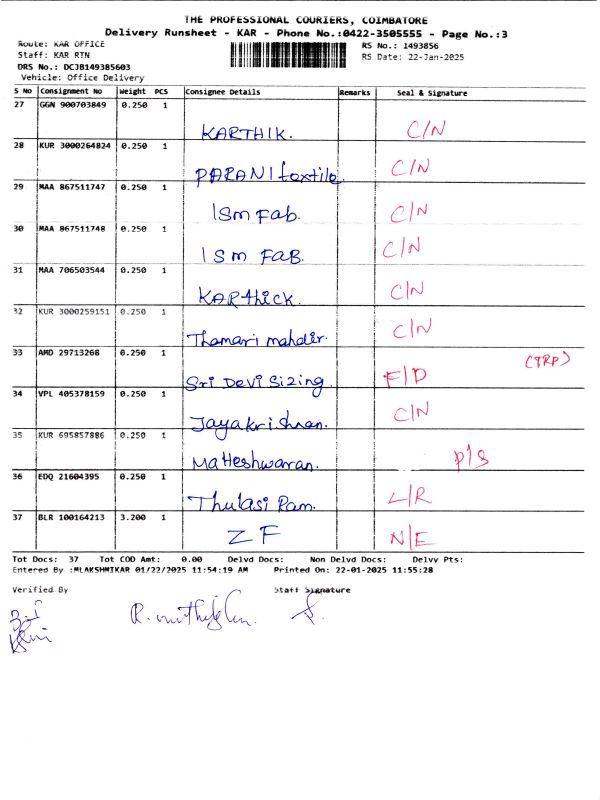 THE PROFESSIONAL COURIERS, COIMBATORE
Delivery Runsheet - KAR - Phone No.:0422-3505555 - Page No.:3
Route: KAR OFFICE
RS No.: 1493856
Staff: KAR RTN
RS Date: 22-Jan-2025
DRS No.: DCJB149385603
Vehicle: Office Delivery
S No Consignment No Weight PCS Consignee Details Remarks Seal & Signature
27 GGN 900703849 0.250 1
KARTHIK. C/N
28 KUR 3000264824 0.250 1
PARANI textile. C/N
29 MAA 867511747 0.250 1
ISm Fab. C/N
30 MAA 867511748 0.250 1
ISm FAB. C/N
31 MAA 706503544 0.250 1
KARthick. C/N
32 KUR 3000259151 0.250 1
Thamari mahdir. C/N
33 AMD 29713268 0.250 1
Sri Devi Sizing. F/D (TRP)
34 VPL 405378159 0.250 1
Jayakrishnan. C/N
35 KUR 695857886 0.250 1
Maheshwaran. P/S
36 EDQ 21604395 0.250 1
Thulasi Ram. L/R
37 BLR 100164213 3.200 1
ZF N/E
Tot Docs: 37 Tot COD Amt: 0.00 Delvd Docs: Non Delvd Docs: Delvv Pts:
Entered By :MLAKSHMIKAR 01/22/2025 11:54:19 AM Printed On: 22-01-2025 11:55:28
Verified By Staff Signature